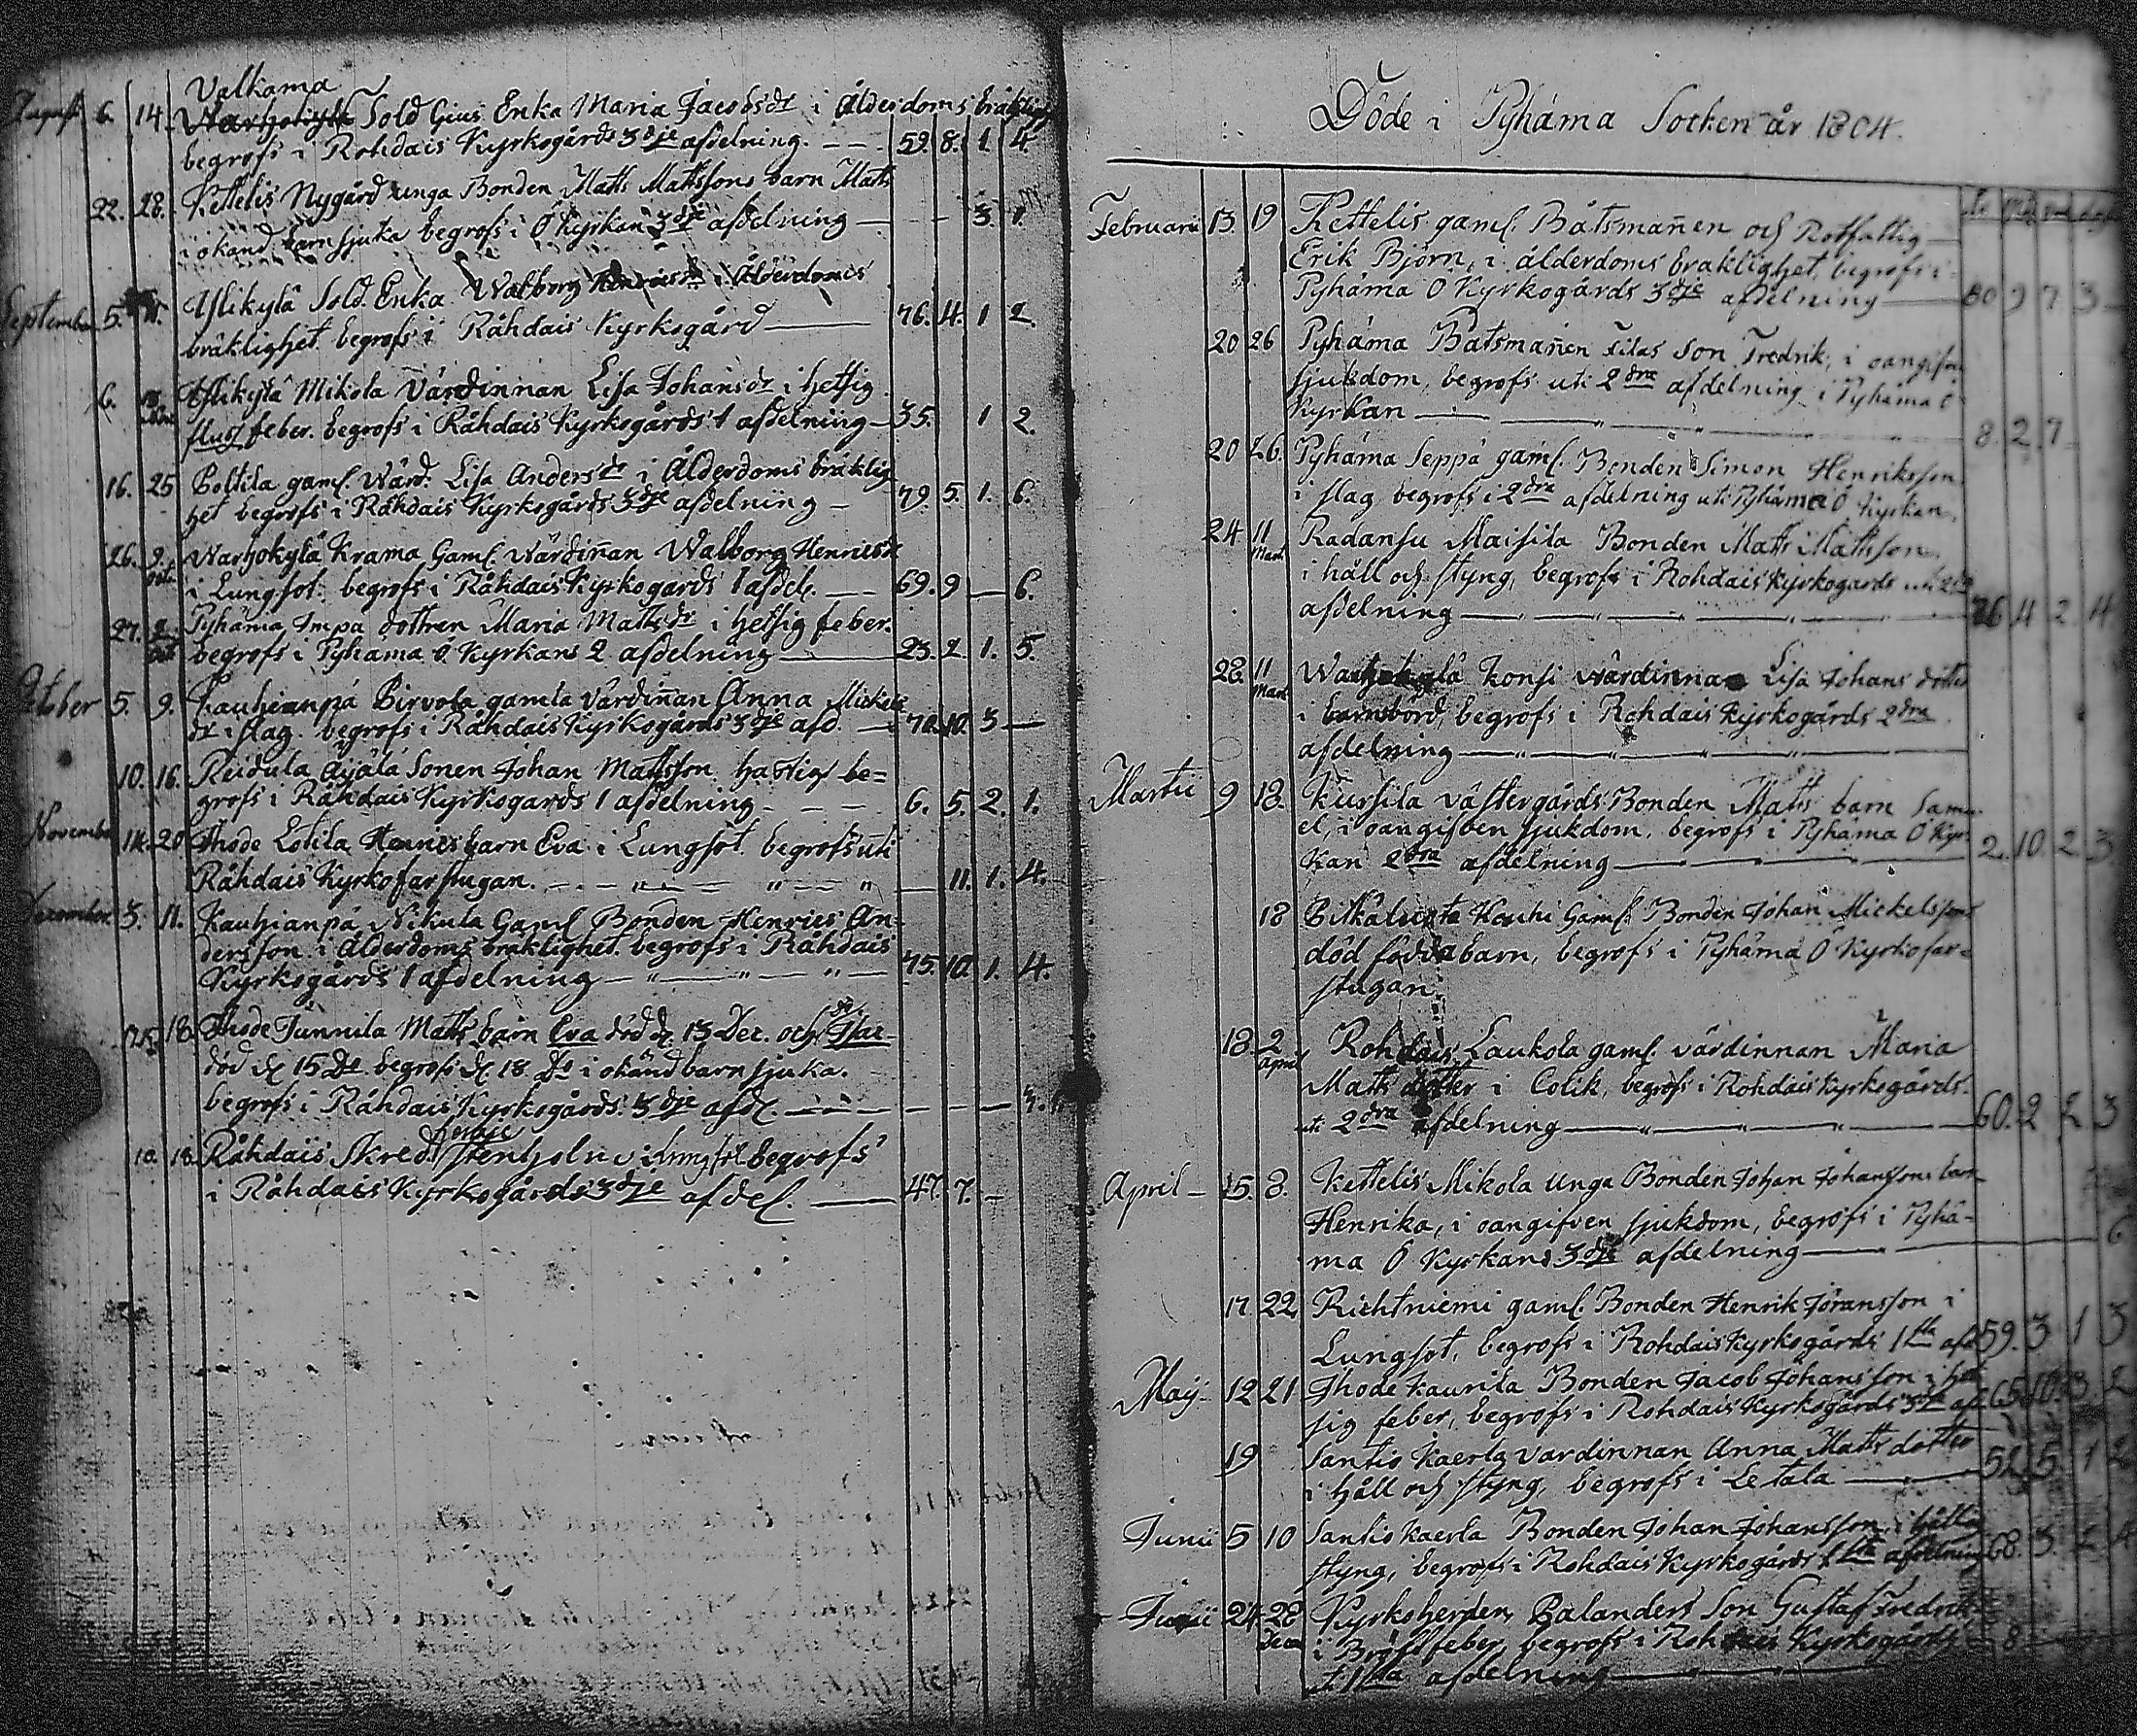 Valkama
Augusti 6. 14. Sold Gius Enka Maria Jacobsdr i Ålderdoms bräklighet
begrofs i Rohdais Kyrkogårds 3dje afdelning. 59. 8. 1. 4.
22. 28. Kettelis Nygård unga Bonden Matts Mattssons barn Matts
i okänd barnsjuka begrofs i Ö Kyrkan 3dje afdelning — 3. 1.
September 5. Ylikylä Sold. Enka Walborg Henricsdr i Ålderdoms
bräklighet begrofs i Råhdais Kyrkogård — 76. 4. 1 2.
6. Ylikylä Mikola Värdinnan Lisa Johansdr i hetsig
fluss feber. begrofs i Råhdais Kyrkogårds 1 afdelning — 35. 1 2.
16. 25 Poltila gaml. Wärd. Lisa Andersdr i Ålderdoms bräklig
het begrofs i Råhdais Kyrkogårds 3dje afdelning — 79. 5. 1. 6.
26. 9. Oct. Warhokylä Krama Gaml. Wärdinnan Walborg Henricsdr
i Lungsot. begrofs i Råhdais Kyrkogards 1 afdel. — 69. 9 — 6.
27. 2. Oct Pyhäma Impa dottren Maria Mattsdr i hetsig feber.
begrofs i Pyhama Ö Kyrkans 2 afdelning — 23. 2 1. 5.
October 5. 9. Kauhianpä Pirvola gamla värdinnan Anna Mickels
dr i slag. begrofs i Råhdais Kyrkogårds 3dje afd. — 70. 10. 3 —
10. 16. Reidula Äijälä Sonen Johan Mattsson hastigt be=
grofs i Råhdais Kyrkogards 1 afdelning — 6. 5. 2. 1.
November 14. 20 Ihode Lotila Henrics barn Eva i Lungsot. begrofs uti
Råhdais Kyrkofarstugan. — 11. 1. 4.
December 3. 11. Kauhianpä Nikula Gaml Bonden Henrics An=
dersson i Ålderdoms bräklighet begrofs i Råhdais
Kyrkogårds 1 afdelning — 75. 10. 1. 4.
18. Ihode Junnila Matts barn Eva död d. 13 Dec. och
död d. 15 Do begrofs d. 18. Do i okänd barnsjuka.
begrofs i Råhdais Kyrkogårds 3dje afd.
10. 18 Råhdais Skredd. i Lungsot begrofs
i Råhdais Kyrkogårds 3dje afdel. — 47. 7. —
Döde i Pyhäma Socken år 1804.
Februarii 13. 19 Kettelis gaml. Båtsmannen och Rotfattig
Erik Björn, i ålderdoms bräklighet, begrofs i
Pyhäma Ö Kyrkogårds 3dje afdelning — 80 9 7 3
20 26 Pyhäma Båtsmannen Filas Son Fredrik, i oangifven
sjukdom, begrofs uti 2dra afdelning i Pyhäma Ö
Kyrkan — 8. 2. 7
20 26. Pyhäma Seppä gaml. Bonden Simon Henriksson
i slag begrofs i 2dra afdelning uti Pyhäma Ö Kyrkan,
24 11 Mart. Radansu Maisila Bonden Matts Mattsson
i håll och styng, begrofs i Rohdais Kyrkogards uti 2dra
afdelning — 4 2 4
28. 11 Mart. Konsi wärdinnan Lisa Johans dotter
i barnsbörd, begrofs i Rohdais Kyrkogårds 2dra
afdelning —
Martii 9 18. Kursila västergårds Bonden Matts barn Samu-
el, i oangifven sjukdom, begrofs i Pyhäma Ö Kyr-
kan 2dra afdelning — 2. 10 2 3
18 Pitkäluota Kouhi Gaml. Bonden Johan Mickelssons
död födda barn, begrofs i Pyhäma Ö Kyrkofar=
stugan.
18. 2 April Rohdais Laukola gaml. värdinnan Maria
Matts dotter i Colik, begrofs i Rohdais Kyrkogårds
uti 2dra afdelning — 60. 2 2 3
April — 15. 8. Kettelis Mikola Unga Bonden Johan Johanssons barn
Henrika, i oangifven sjukdom, begrofs i Pyhä-
ma Ö Kyrkans 3dje afdelning — 6
17 22 Richtniemi gaml. Bonden Henrik Jöransson i
Lungsot, begrofs i Rohdais Kyrkogårds 1sta afd 59. 3 1 3
Maij 12 21 Ihode Kaurila Bonden Jacob Johansson i het
sig feber, begrofs i Rohdais Kyrkogårds 3dje afd 65. 10. 3. 2
19 Santio Kaerla vardinnan Anna Matts dotter
i håll och styng, begrofs i Letala — 52. 5. 1 2
Junii 5 10 Santio Kaerla Bonden Johan Johansson, i håll
styng, begrofs i Rohdais Kyrkogårds 1sta afdelning 68. 3.
Junii 24 28 Kyrkoherden Balanders Son Gustaf Fredrik
i Bröstfeber, begrofs i Rohdais Kyrkogårds — 8
1sta afdelning —